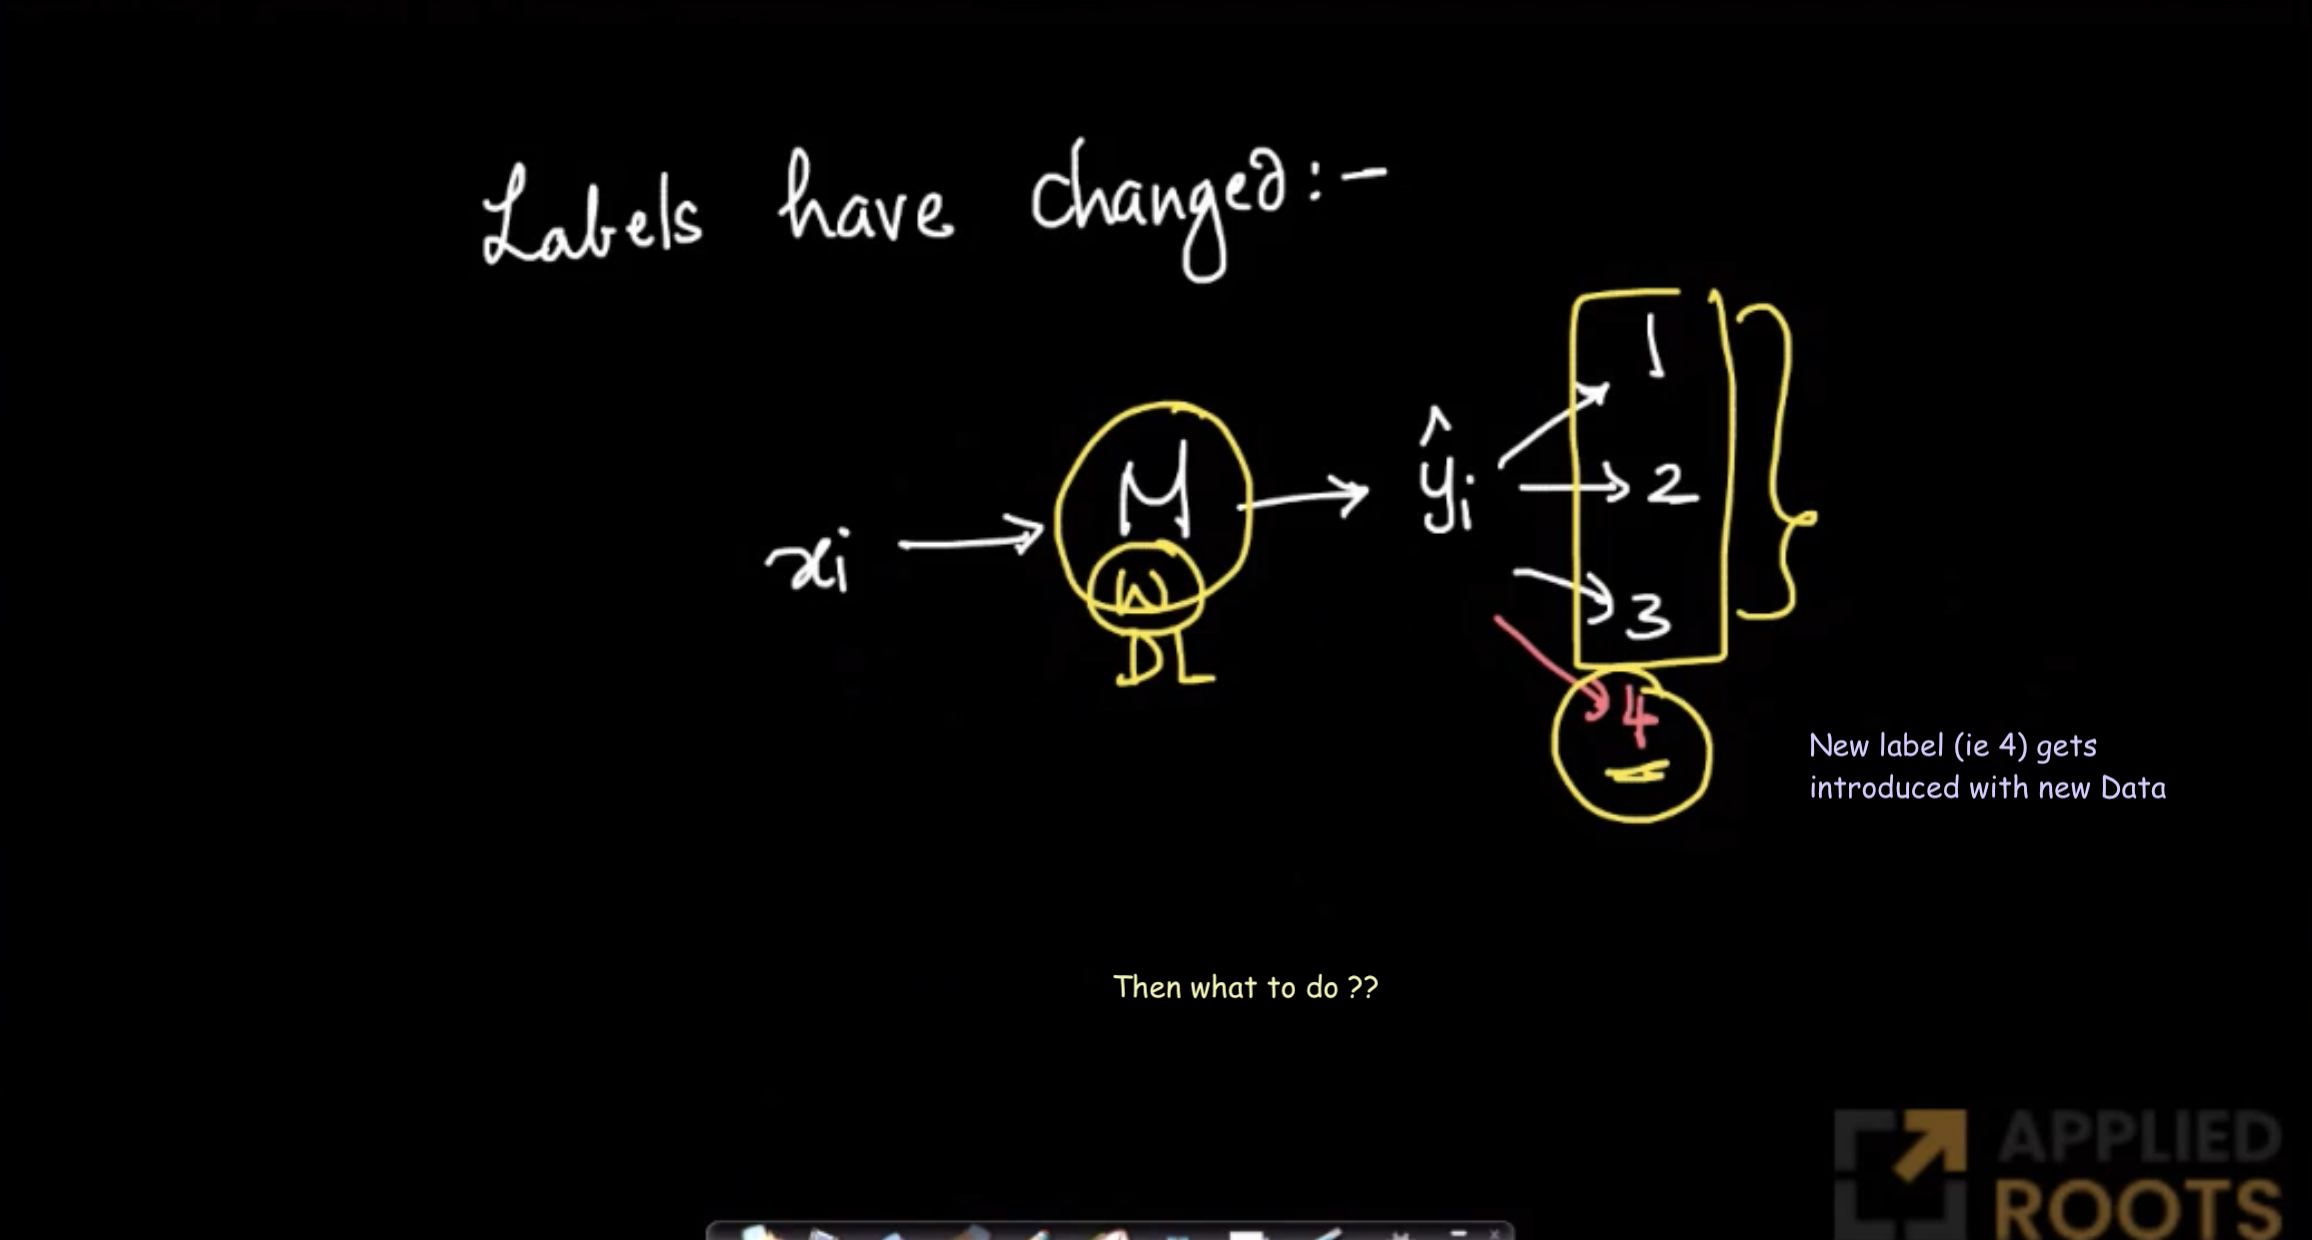 Labels have changed:-
1
M
ŷi
2
xi
W
3
DL
4
New label (ie 4) gets
introduced with new Data
Then what to do ??
APPLIED
ROOTS